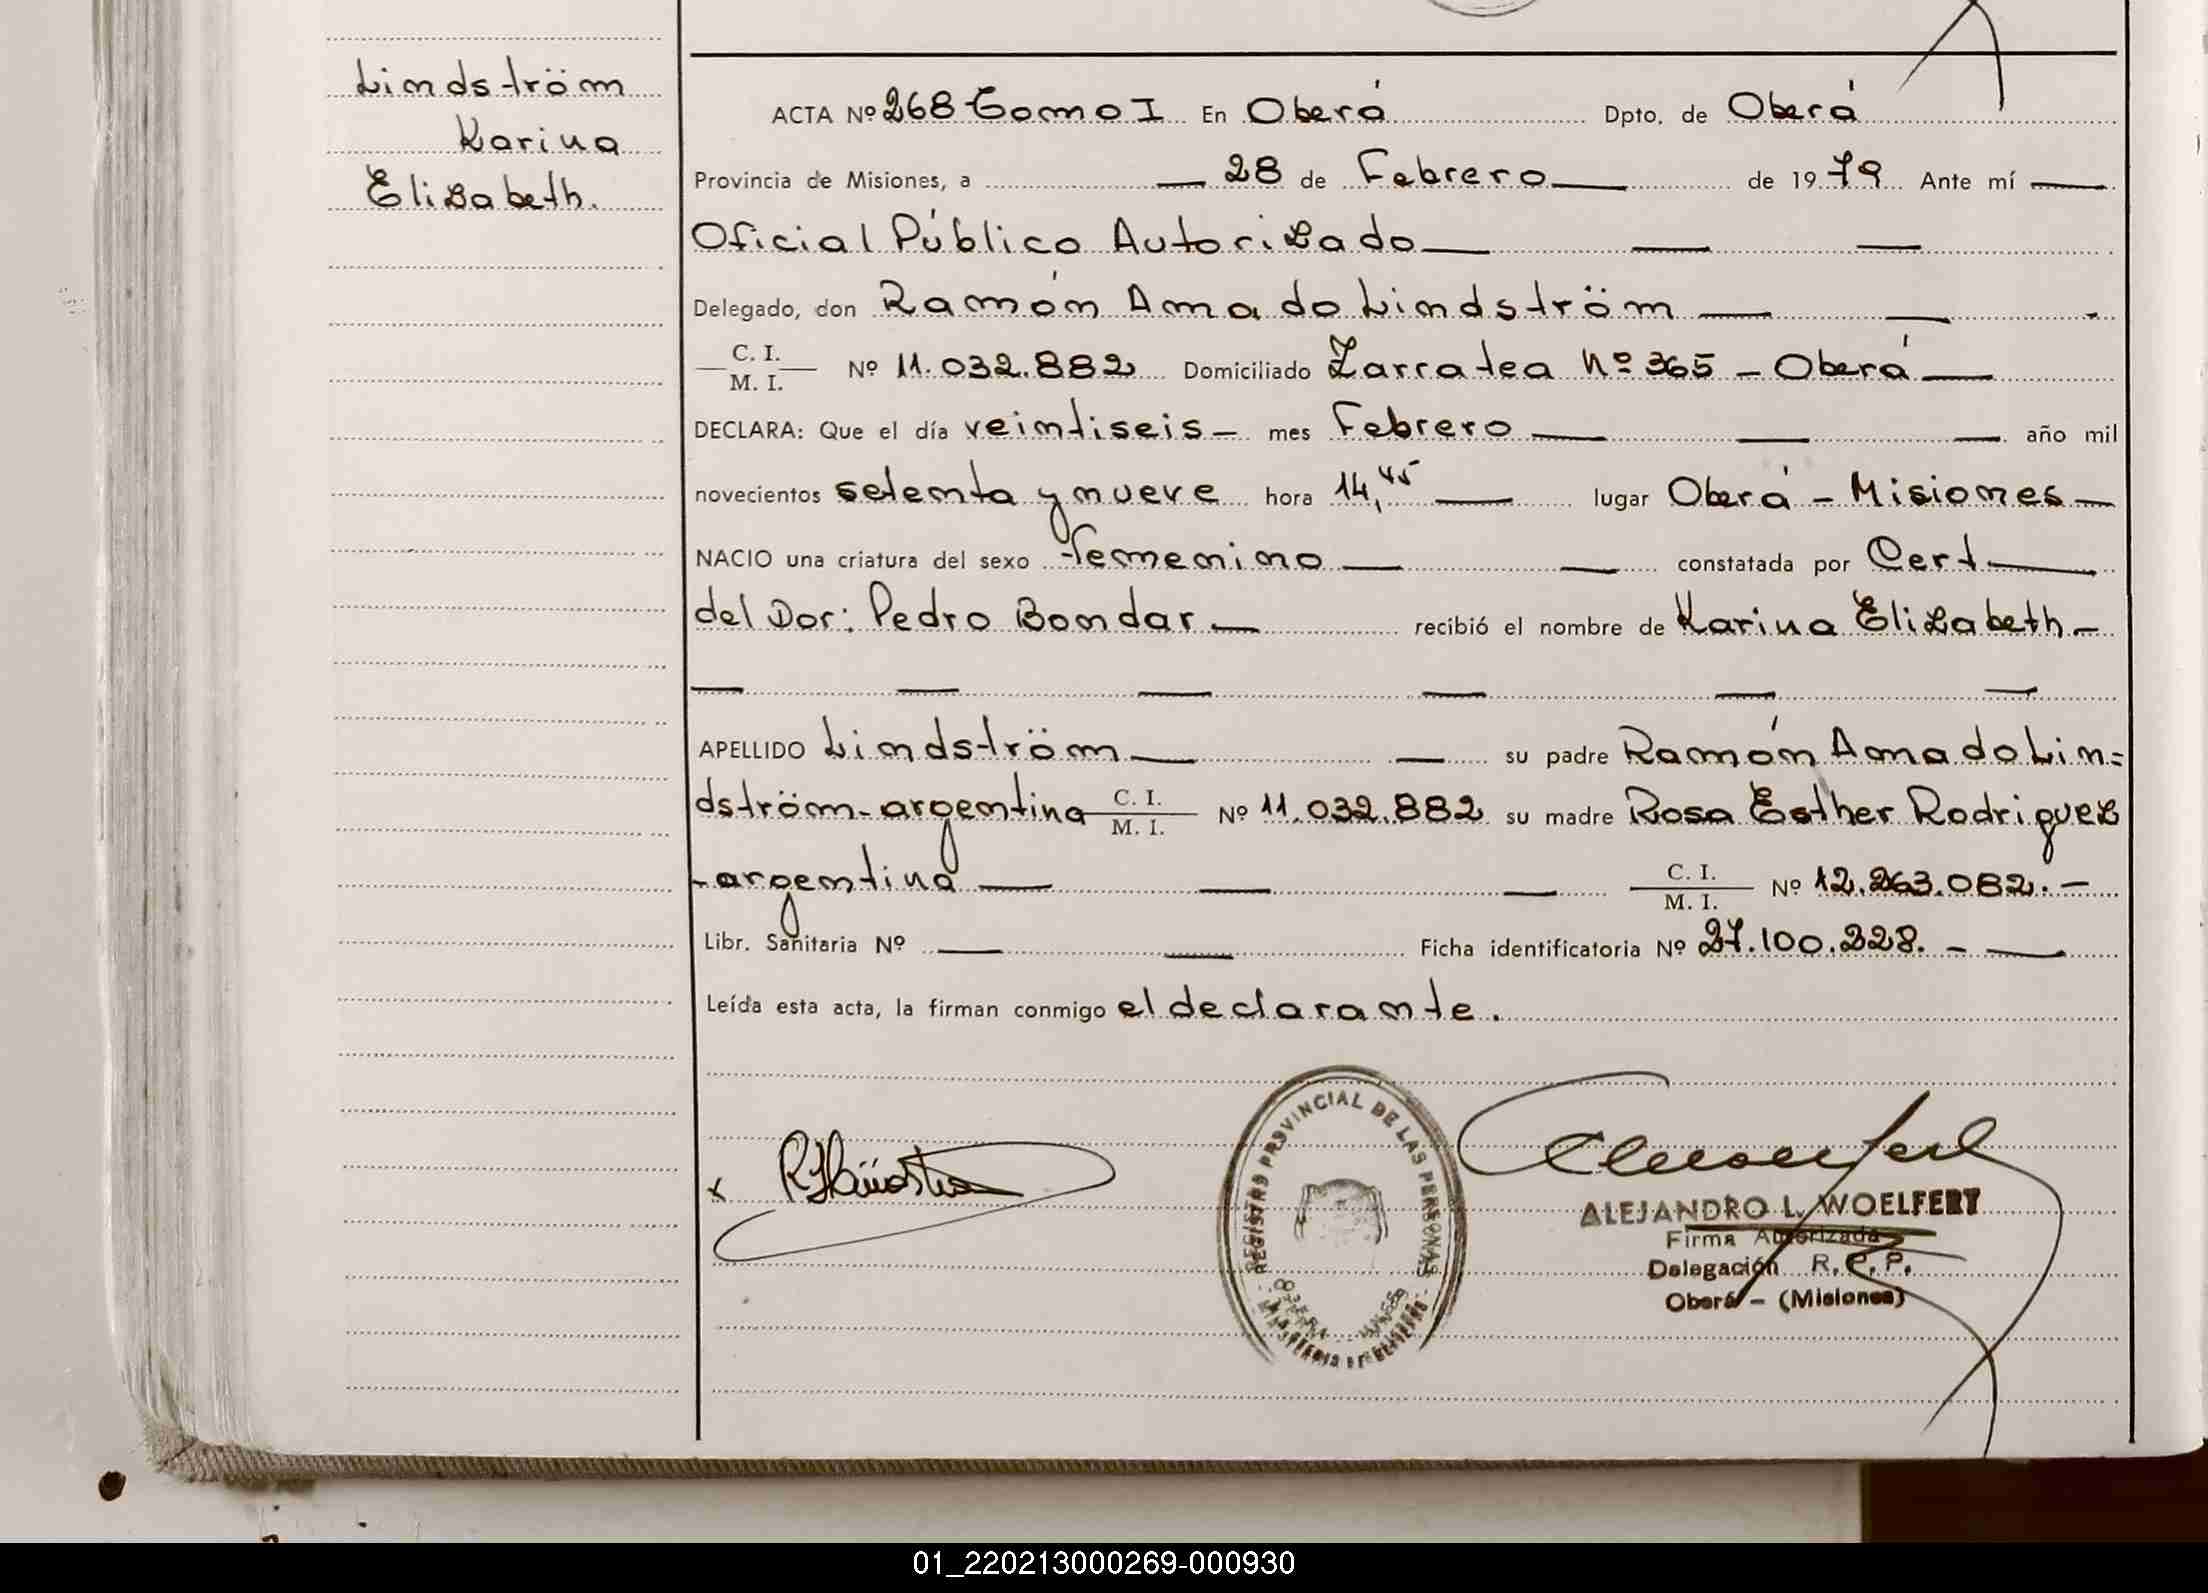 Lindström
Karina
Elizabeth.
ACTA Nº 268 Tomo I En Oberá Dpto. de Oberá
Provincia de Misiones, a 28 de Febrero de 1979 Ante mí
Oficial Público Autorizado
Delegado, don Ramón Amado Lindström
C. I.
M. I. Nº 11.032.882 Domiciliado Zarratea Nº 365 - Oberá
DECLARA: Que el día veintiseis - mes Febrero año mil
novecientos setenta y nueve hora 14,45 lugar Oberá - Misiones
NACIO una criatura del sexo femenino constatada por Cert
del Dor: Pedro Bondar recibió el nombre de Karina Elizabeth -
APELLIDO Lindström su padre Ramón Amado Lin=
dström - argentina C. I.
M. I. Nº 11.032.882 su madre Rosa Esther Rodriguez
- argentina C. I.
M. I. Nº 12.263.082. -
Libr. Sanitaria Nº Ficha identificatoria Nº 27.100.228. -
Leída esta acta, la firman conmigo el declarante.
REGISTRO PROVINCIAL DE LAS PERSONAS
ALEJANDRO L. WOELFERT
Firma Autorizada
Delegación R. P. P.
Oberá - (Misiones)
01_220213000269-000930